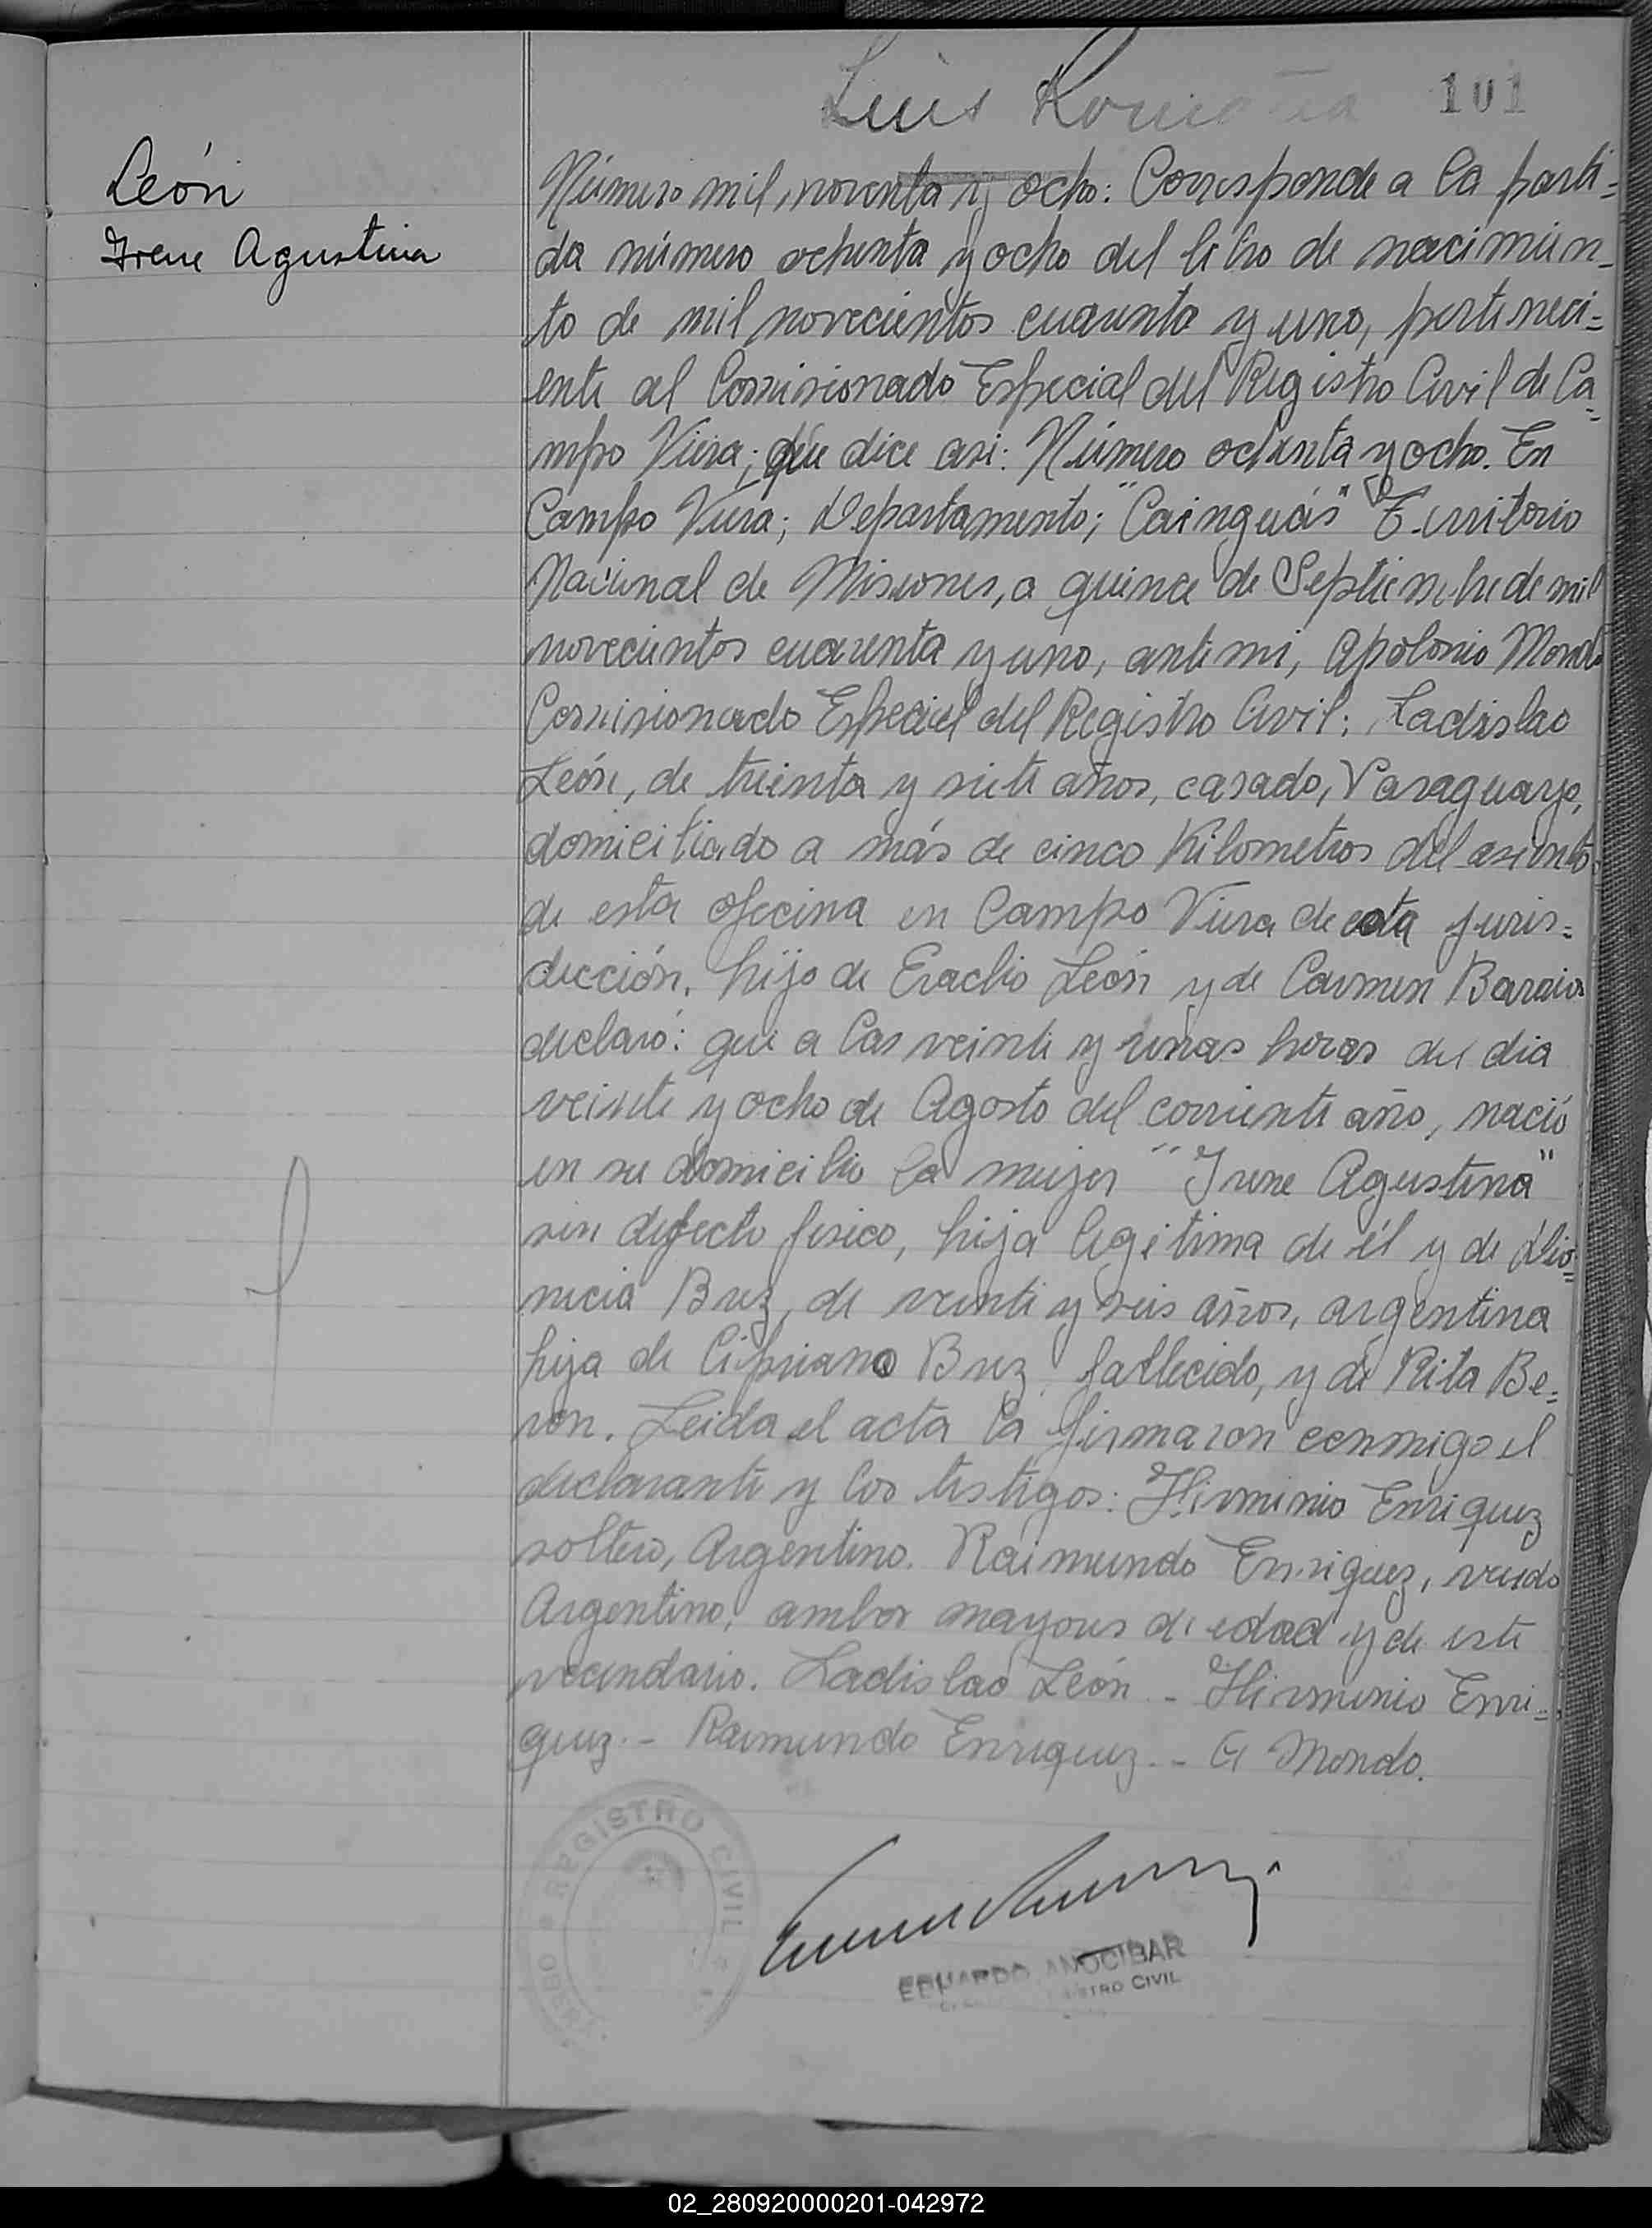 Luis
101
León
Irene Agustina
Número mil, noventa y ocho: Corresponde a la parti=
da número ochenta y ocho del libro de nacimien_
to de mil novecientos cuarenta y uno, perteneci=
ente al Comisionado Especial del Registro Civil de Ca=
mpo Viera; que dice asi: Número ochenta y ocho. En
Campo Viera; Departamento; "Cainguás" Territorio
Nacional de Misiones, a quince de Septiembre de mil
novecientos cuarenta y uno, ante mi, Apolonio Mondo
Comisionado Especial del Registro Civil: Ladislao
León, de treinta y siete años, casado, Paraguayo,
domiciliado a más de cinco Kilometros del asiento
de esta oficina en Campo Viera de esta juris=
dicción, hijo de Eraclio León y de Carmen Barrios
declaró: que a las veinte y unas horas del dia
veinte y ocho de Agosto del corriente año, nació
en su domicilio la mujer "Irene Agustina"
sin defecto fisico, hija legitima de él y de Dio=
nicia Brez, de veinte y seis años, argentina
hija de Cipriano Brez, fallecido, y de Rita Be=
ron. Leida el acta la firmaron conmigo el
declarante y los testigos: Hirminio Enriquez
soltero, Argentino. Raimundo Enriquez, viudo
Argentino, ambos mayores de edad y de este
vecindario. Ladislao León - Hirminio Enri=
quez.- Raimundo Enriquez.- A Mondo.
REGISTRO CIVIL
EDUARDO ANOCIBAR
REGISTRO CIVIL
02_280920000201-042972